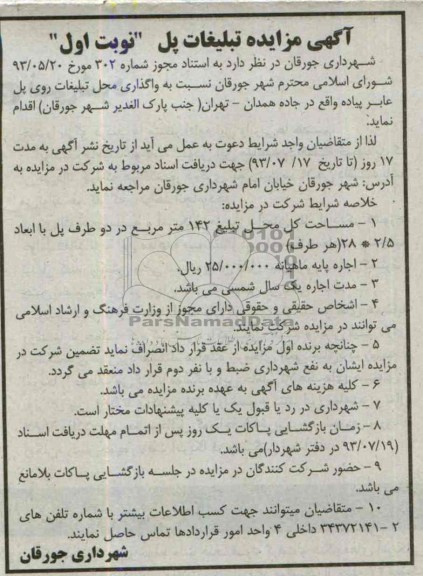 آگهی مزایده تبلیغات پل "نوبت اول"
شهرداری جورقان در نظر دارد به استناد مجوز شماره ۳۰۲ مورخ ۹۳/۰۵/۲۰
شورای اسلامی محترم شهر جورقان نسبت به واگذاری محل تبلیغات روی پل
عابر پیاده واقع در جاده همدان - تهران( جنب پارک الغدیر شهر جورقان) اقدام
نماید:
لذا از متقاضیان واجد شرایط دعوت به عمل می آید از تاریخ نشر آگهی به مدت
۱۷ روز (تا تاریخ ۱۷/ ۹۳/۰۷) جهت دریافت اسناد مربوط به شرکت در مزایده به
آدرس: شهر جورقان خیابان امام شهرداری جورقان مراجعه نماید.
خلاصه شرایط شرکت در مزایده:
۱ - مساحت کل محل تبلیغ ۱۴۲ متر مربع در دو طرف پل با ابعاد
۲/۵ * ۲۸(هر طرف)
۲ - اجاره پایه ماهیانه ۲۵/۰۰۰/۰۰۰ ریال.
۳ - مدت اجاره یک سال شمسی می باشد.
۴ - اشخاص حقیقی و حقوقی دارای مجوز از وزارت فرهنگ و ارشاد اسلامی
می توانند در مزایده شرکت نمایند.
ParsNamadData
۵ - چنانچه برنده اول مزایده از عقد قرار داد انصراف نماید تضمین شرکت در
مزایده ایشان به نفع شهرداری ضبط و با نفر دوم قرار داد منعقد می گردد.
۶ - کلیه هزینه های آگهی به عهده برنده مزایده می باشد.
۷ - شهرداری در رد یا قبول یک یا کلیه پیشنهادات مختار است.
۸ - زمان بازگشایی پاکات یک روز پس از اتمام مهلت دریافت اسناد
(۹۳/۰۷/۱۹ در دفتر شهردار)می باشد.
۹ - حضور شرکت کنندگان در مزایده در جلسه بازگشایی پاکات بلامانع
می باشد.
۱۰ - متقاضیان میتوانند جهت کسب اطلاعات بیشتر با شماره تلفن های
۲ -۳۴۳۷۲۱۴۱ داخلی ۴ واحد امور قراردادها تماس حاصل نمایند.
شهرداری جورقان